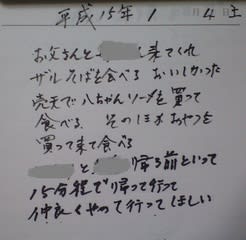 平成15年 1 4 土
お父さんと 来てくれ
ザルそばを食べる おいしかった
売天で八ちゃんソーメを買って
食べる そのほかおやつを
買って来て食べる
と 帰る前といって
15分程で帰って行って
仲良くやって行ってほしい